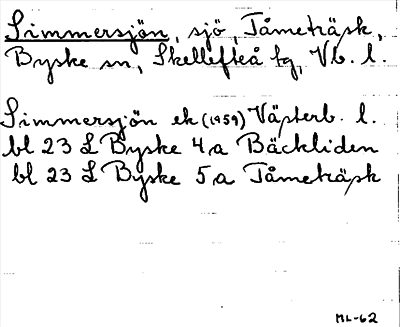 Simmersjön, sjö, Tåmeträsk,
Byske sn, Skellefteå tg, Vb. l.
Simmersjön ek (1959) Västerb. l.
bl 23 L Byske 4a Bäckliden
bl 23 L Byske 5a Tåmeträsk
ML-62